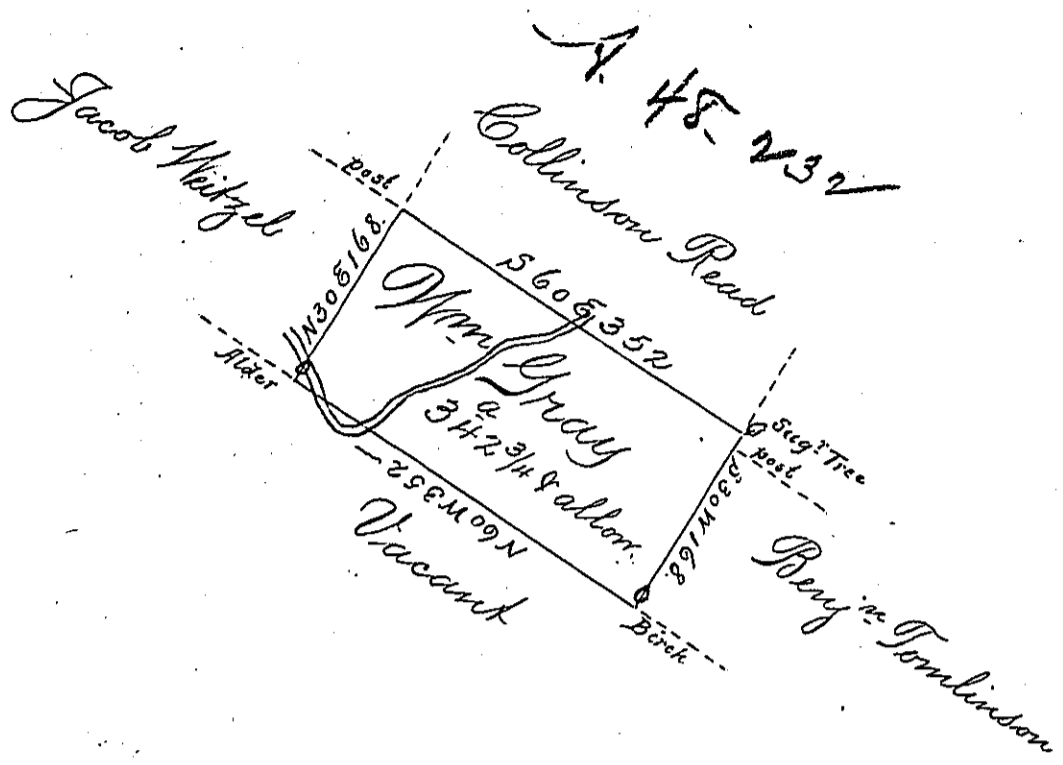 A. 45. 232
Jacob Weitzel
Collinson Read
post
N30E168.
S60E352
Wm Gray
a
342 3/4 & allow.
Alder
Sugr. Tree
post
S.30W168.
N60W352
Vacant
Birch
Benjn Tomlinson